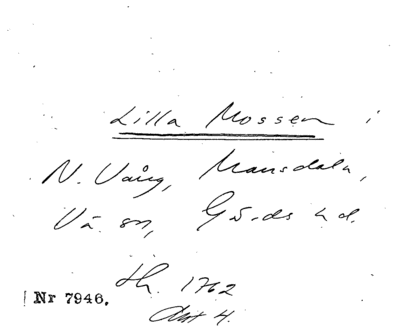 Lilla Mossen i
N. Vång, Mansdala,
Vä sn, Gärds hd.
Nr 7946. th. 1762
Akt 4.